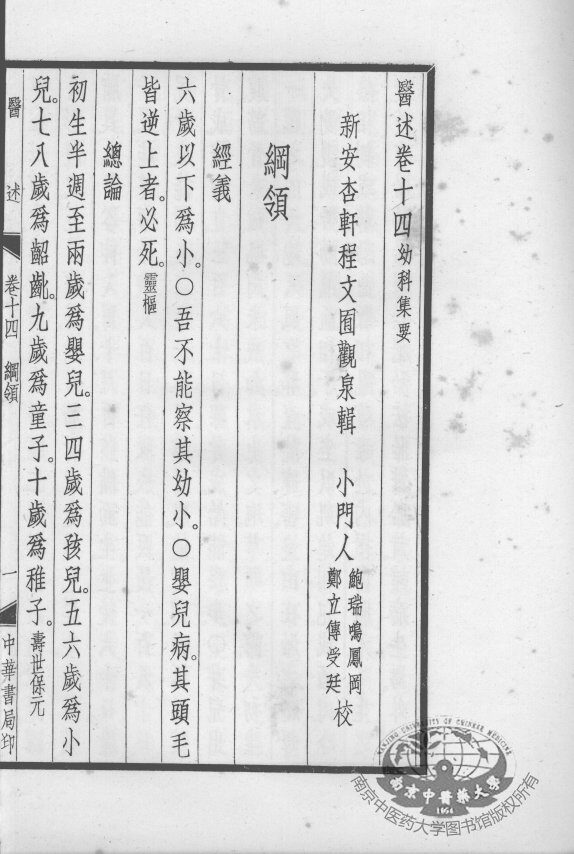 醫述卷十四幼科集要
新安杏軒程文囿觀泉輯　小門人鮑瑞鳴鳳岡鄭立傳受廷校
綱領
經義
六歲以下爲小。○吾不能察其幼小。○嬰兒病。其頭毛
皆逆上者。必死。靈樞
總論
初生半週至兩歲爲嬰兒。三四歲爲孩兒。五六歲爲小
兒。七八歲爲齠齔。九歲爲童子。十歲爲稚子。壽世保元
醫述　卷十四　綱領　一　中華書局印
NANJING UNIVERSITY OF CHINESE MEDICINE
南京中醫藥大學
1954
南京中医药大学图书馆版权所有